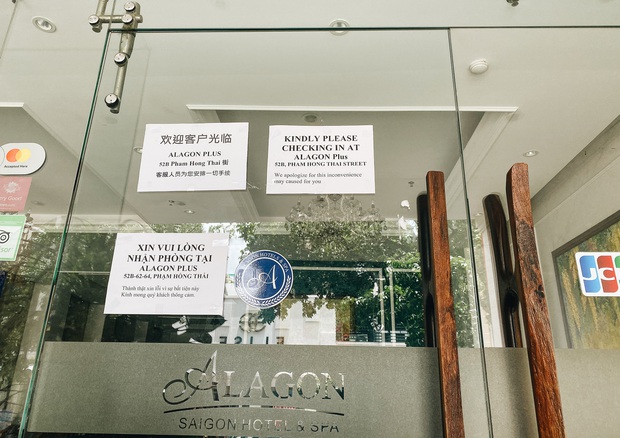 欢迎客户光临
ALAGON PLUS
52B Pham Hong Thai 街
客服人员为您安排一切手续
KINDLY PLEASE
CHECKING IN AT
ALAGON Plus
52B, PHAM HONG THAI STREET
We apologize for this inconvenience
may caused for you
XIN VUI LÒNG
NHẬN PHÒNG TẠI
ALAGON PLUS
52B-62-64, PHẠM HỒNG THÁI
Thành thật xin lỗi vì sự bất tiện này
Kính mong quý khách thông cảm.
SAIGON HOTEL & SPA
A
ALAGON
SAIGON HOTEL & SPA
JCB